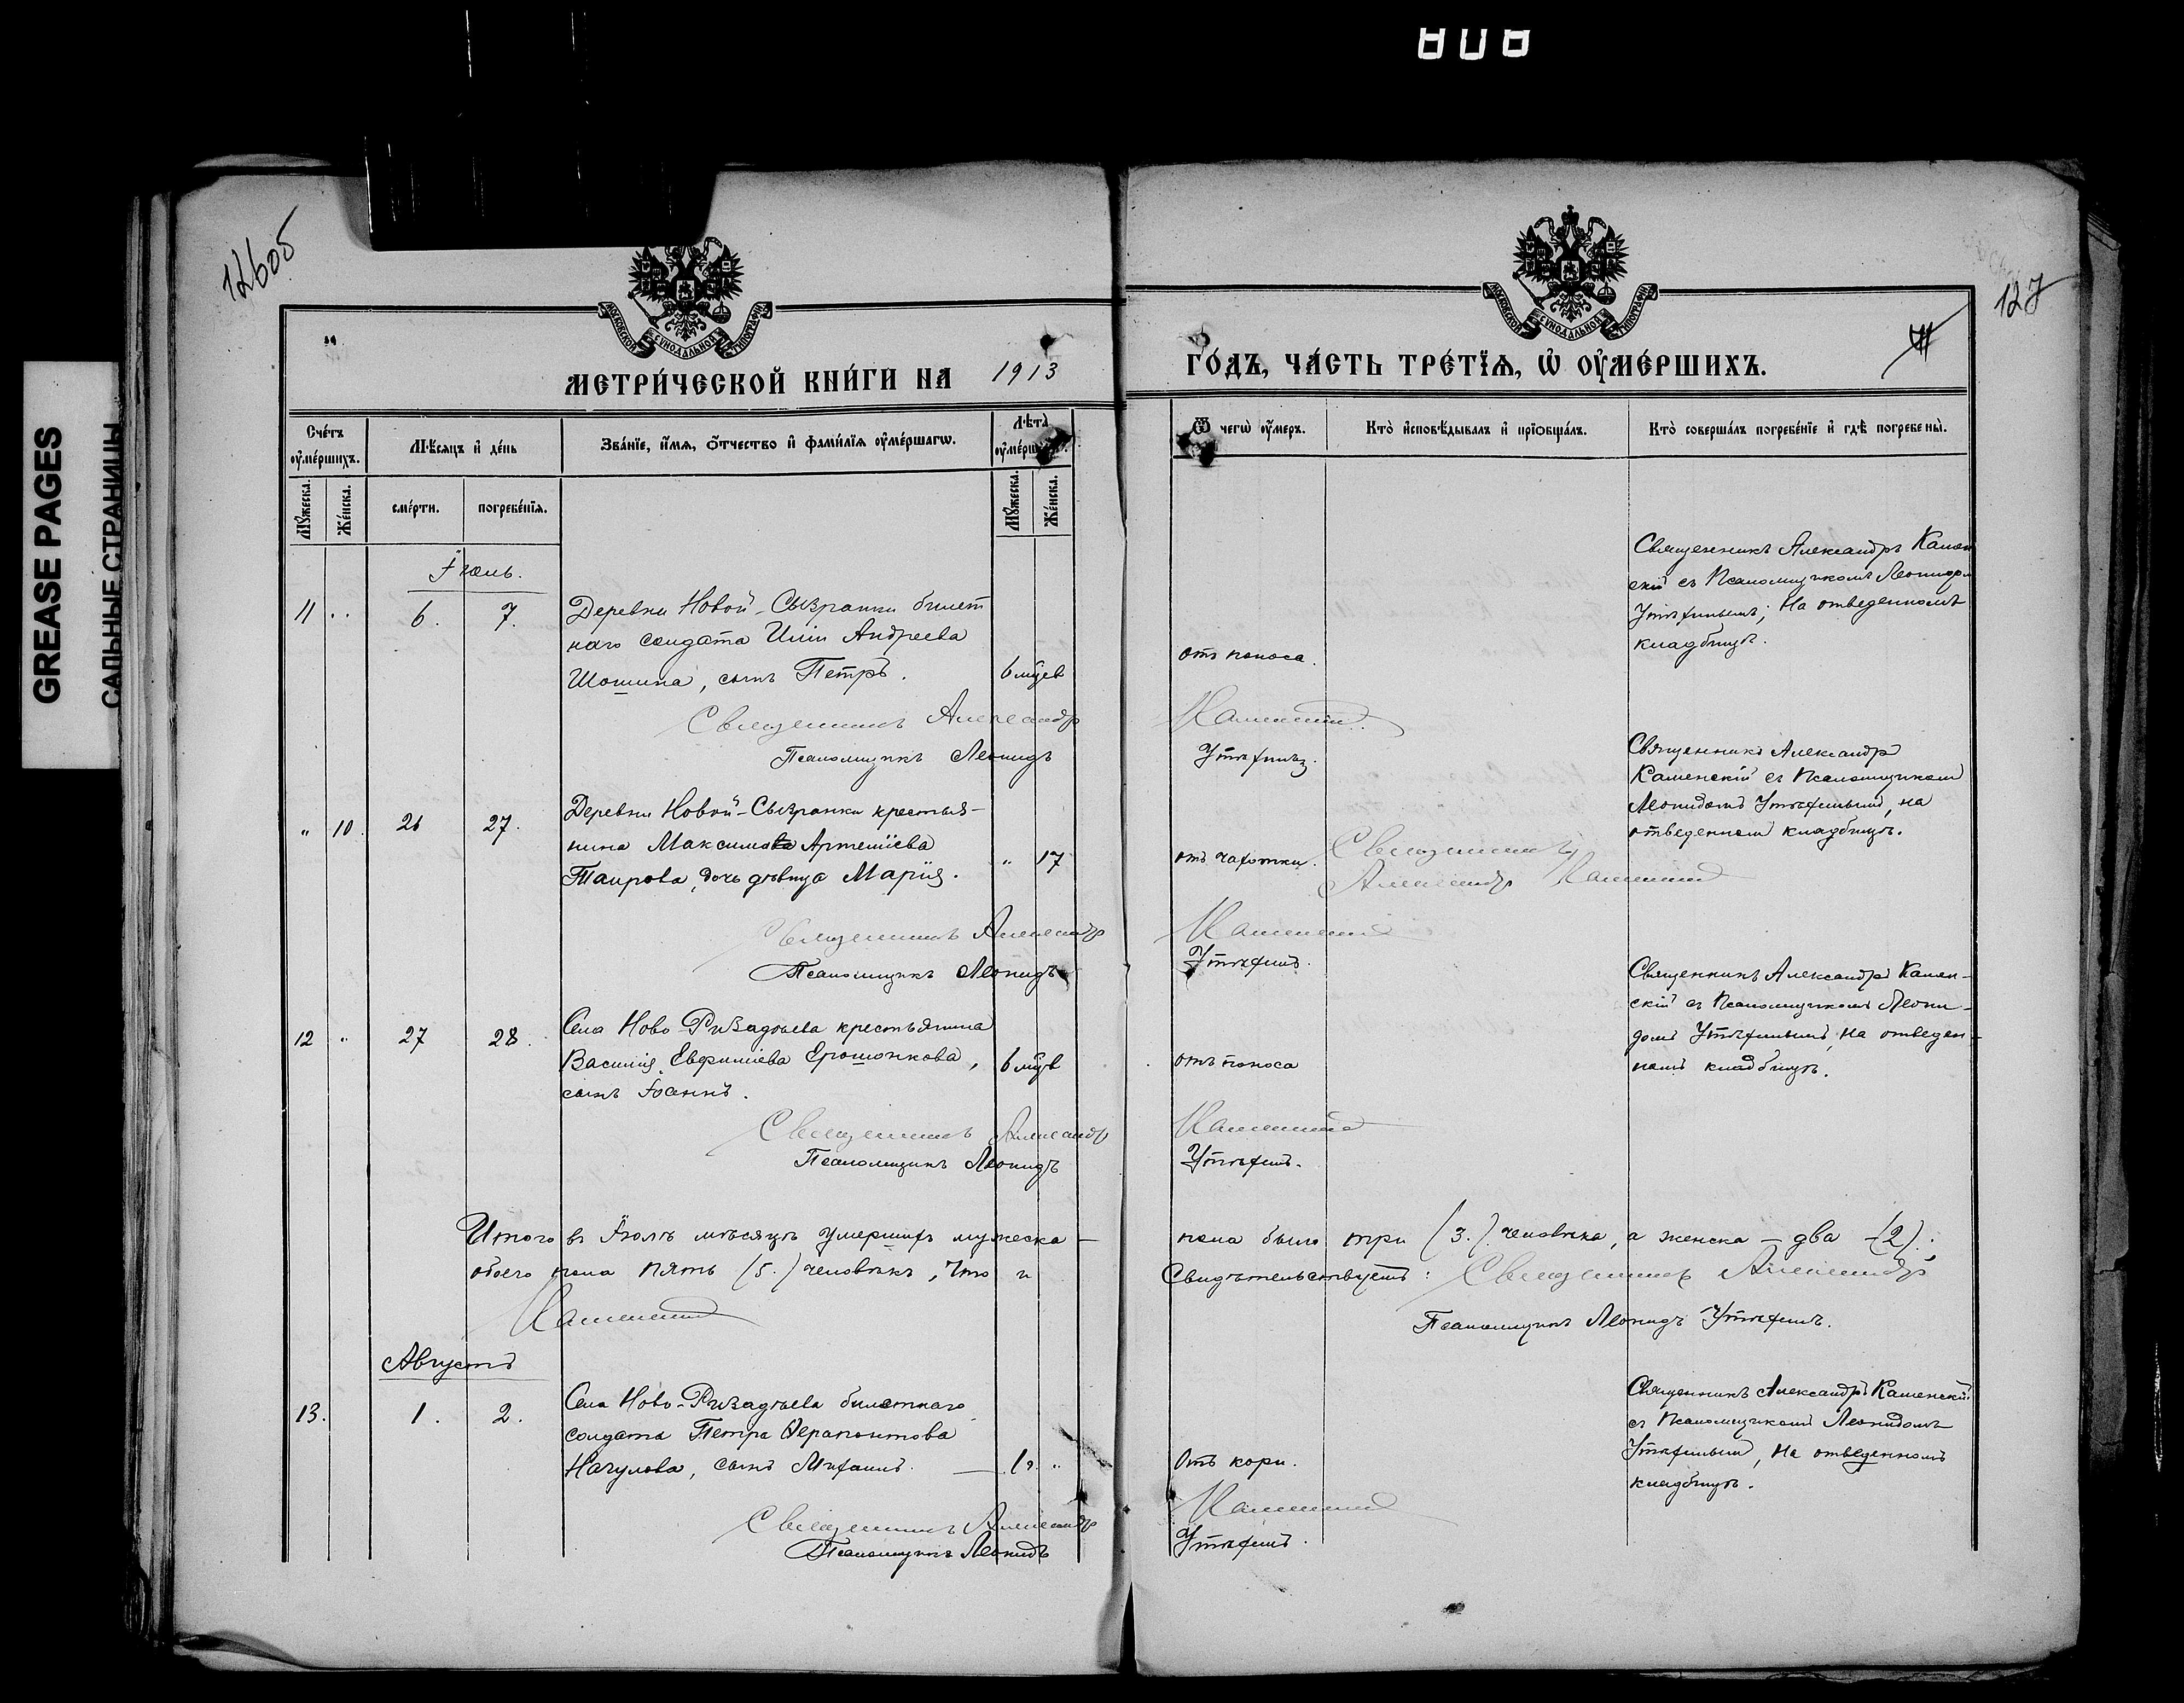 808
GREASE PAGES
САЛЬНЫЕ СТРАНИЦЫ
126об
127
МОСКОВСКОЙ СѴНОДАЛЬНОЙ ТИПОГРАФІИ
МОСКОВСКОЙ СѴНОДАЛЬНОЙ ТИПОГРАФІИ
МЕТРИ́ЧЕСКОЙ КНИ́ГИ НА 1913 ГО́ДЪ, ЧА́СТЬ ТРЕ́ТЇѦ, Ѡ҆ ОУ҆МЕ́РШИХЪ.
Сче́тъ оу҆ме́ршихъ.
Мѣ́сѧцъ и҆ де́нь
Зва́нїе, и҆́мѧ, ѻ҆́тчество и҆ фами́лїѧ оу҆ме́ршагѡ.
Лѣ́та оу҆ме́рш
Ѿ чегѡ̀ оу҆́меръ.
Кто̀ и҆сповѣ́дывалъ и҆ прїѡбща́лъ.
Кто̀ соверша́лъ погребе́нїе и҆ гдѣ̀ погребены̀.
Мꙋ́жеска.
Же́нска.
сме́рти.
погребе́нїѧ.
Мꙋ́жеска.
Же́нска.
Іюль.
11 " 6. 7.
Деревни Новой-Сызранки билет
наго солдата Иліи Андреева
Шошина, сынъ Петръ.
6 мцев
отъ поноса.
Священникъ Александръ Камен
скій съ Псаломщикомъ Леонидом
Утѣхинымъ; на отведенномъ
кладбищѣ.
Священникъ Александр Каменскій
Псаломщикъ Леонидъ Утѣхинъ.
" 10. 26 27.
Деревни Новой-Сызранки крестья-
нина Максима Артеміева
Таирова, дочь дѣвица Марія.
" 17
отъ чахотки.
Священникъ
Александр Каменскій
Священникъ Александр
Каменскій съ Псаломщикомъ
Леонидомъ Утѣхинымъ, на
отведенномъ кладбищѣ.
Священникъ Александр Каменскій
Псаломщикъ Леонидъ Утѣхинъ.
12 " 27 28.
Села Ново-Ризадѣева крестьянина
Василія Евфиміева Ерошонкова,
сынъ Іоаннъ.
6 мцв
отъ поноса
Священникъ Александръ Камен-
скій съ Псаломщикомъ Леони-
домъ Утѣхинымъ, на отведен-
номъ кладбищѣ.
Священникъ Александр Каменскій
Псаломщикъ Леонидъ Утѣхинъ.
Итого въ Іюлѣ мѣсяцѣ умершихъ мужеска - пола было три (3.) человѣка, а женска - два (2).;
обоего пола пять (5.) человѣкъ, что и Свидѣтельствуетъ: Священникъ Александр
Каменскій
Псаломщикъ Леонидъ Утѣхинъ.
Августъ
13. 1. 2.
Села Ново-Ризадѣева билетнаго
солдата Петра Ѳерапонтова
Начулова, сынъ Михаилъ.
1 г. "
Отъ кори.
Священникъ Александръ Каменскій
съ Псаломщикомъ Леонидомъ
Утѣхинымъ, на отведенномъ
кладбищѣ.
Священникъ Александр Каменскій
Псаломщикъ Леонидъ Утѣхинъ.